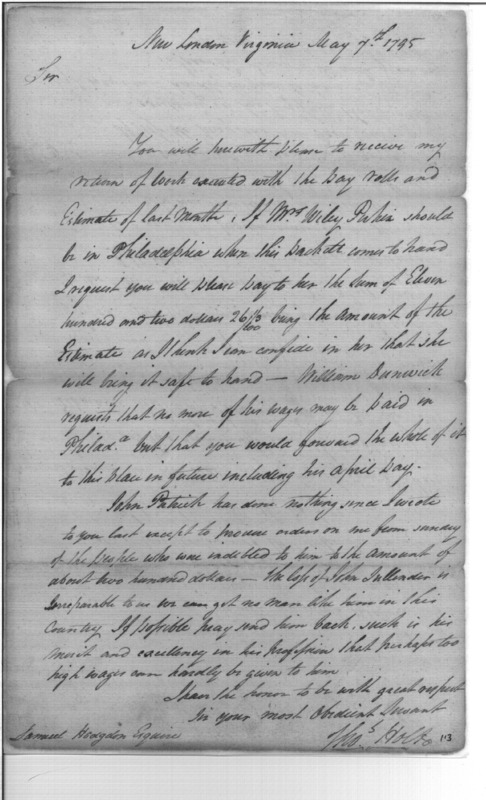 New London Virginia May 7th 1795
Sir
You will herewith please to receive my
return of work executed with the pay rolls and
Estimate of last month; If Mrs Wiley should
be in Philadelphia when this packett comes to hand
I request you will please pay to her the sum of Eleven
hundred and two dollars 26/100 being the amount of the
Estimate as I think I can confide in her that she
will bring it safe to hand — William Dunwick
requests that no more of his wages may be paid in
Philad.a but that you would forward the whole of it
to this place in future including his april pay.
John Patrick has done nothing since I wrote
to you last except to procure orders on me from sundry
of the people who were indebted to him to the amount of
about two hundred dollars — the loss of John is
Irreparable to us we can get no man like him in this
Country If possible pray send him back. such is his
merit and excellency in his profession that perhaps too
high wages can hardly be given to him
I have the honor to be with great respect
Sir your most Obedient Servant
Thos Holt
Samuel Hodgdon Esquire
113